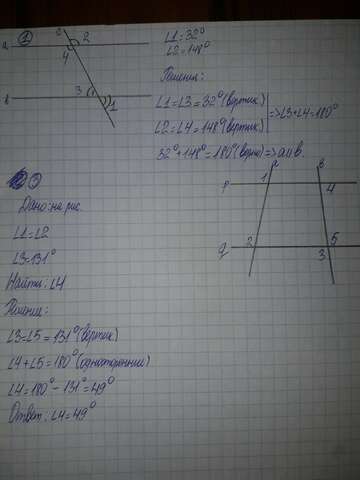 1
∠1=32°
∠2=148°
c
a
2
4
b
3
1
Решение:
∠1=∠3=32° (вертик)
∠2=∠4=148° (вертик)
=>∠3+∠4=180°
32°+148°=180° (верно)=>a॥b.
3
Дано: на рис.
∠1=∠2
∠3=131°
Найти: ∠4
Решение:
∠3=∠5=131° (вертик)
∠4+∠5=180° (односторонние)
∠4=180°-131°=49°
Ответ: ∠4=49°
a
b
p
1
4
q
2
3
5